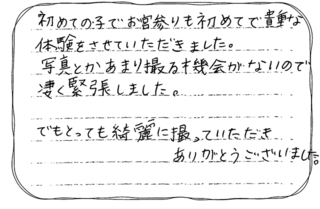 初めての子でお宮参りも初めてで貴重な
体験をさせていただきました。
写真とかあまり撮る機会がないので
凄く緊張しました。
でもとっても綺麗に撮っていただき
ありがとうございました。